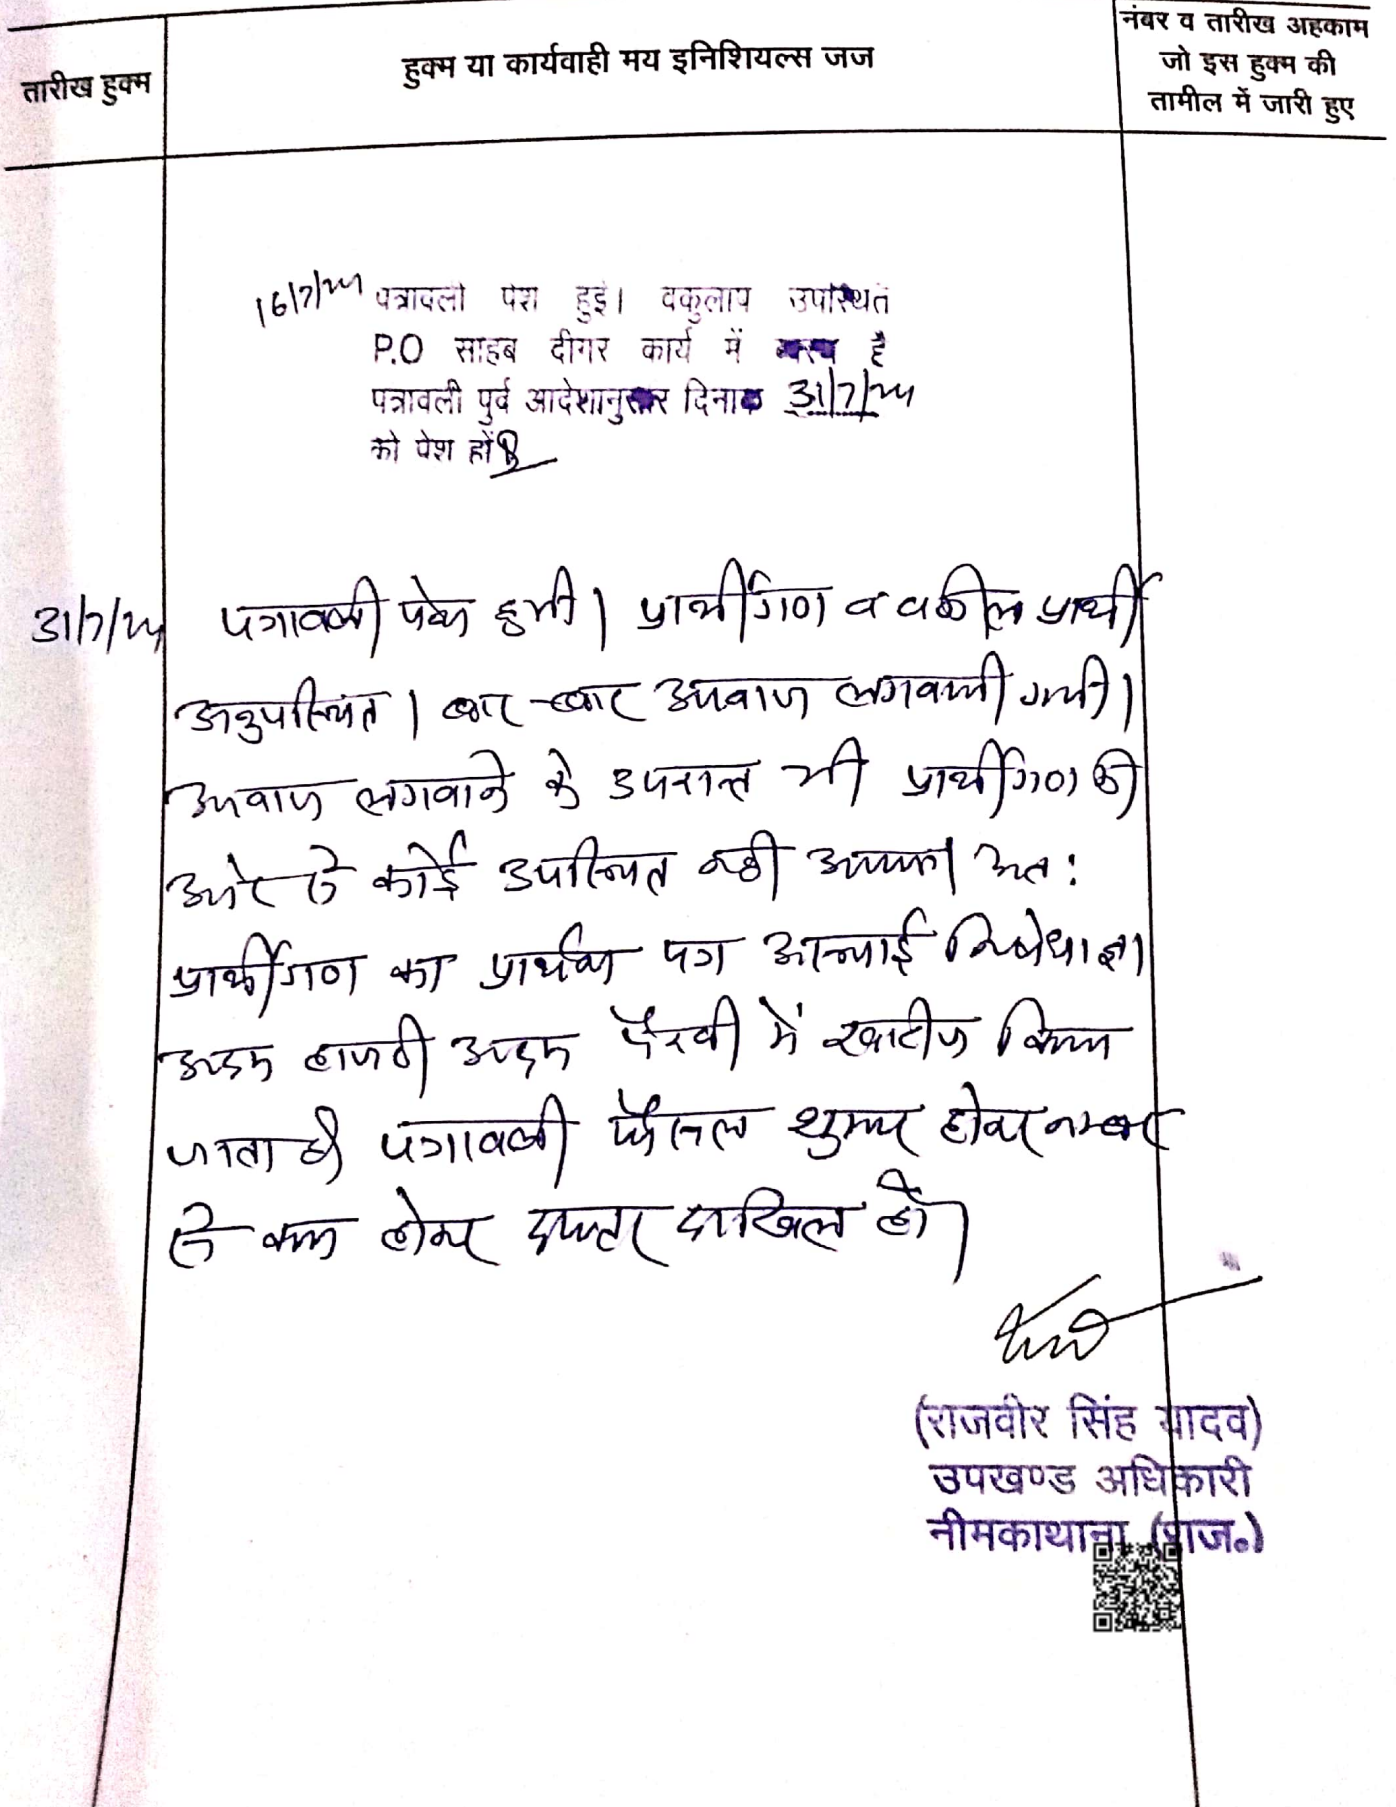 तारीख हुक्म
हुक्म या कार्यवाही मय इनिशियल्स जज
नंबर व तारीख अहकाम
जो इस हुक्म की
तामील में जारी हुए
16/7/24 पत्रावली पेश हुई। वकुलाय उपस्थित
P.O साहब दीगर कार्य में व्यस्त है
पत्रावली पुर्व आदेशानुसार दिनांक 31/7/24
को पेश हों
31/7/24 पत्रावली पेश हुयी। प्रार्थीगण व वकील प्रार्थी
अनुपस्थित। बार-बार आवाज लगवायी गयी।
आवाज लगवाने के उपरान्त भी प्रार्थीगण की
ओर से कोई उपस्थित नही आया। अतः
प्रार्थीगण का प्रार्थना पत्र अस्थाई निषेधाज्ञा
अदम हाजरी अदम पैरवी में खारीज किया
जाता है। पत्रावली फैसल शुमार होकर नम्बर
से कम होकर दफ्तर दाखिल हो।
(राजवीर सिंह यादव)
उपखण्ड अधिकारी
नीमकाथाना (राज०)